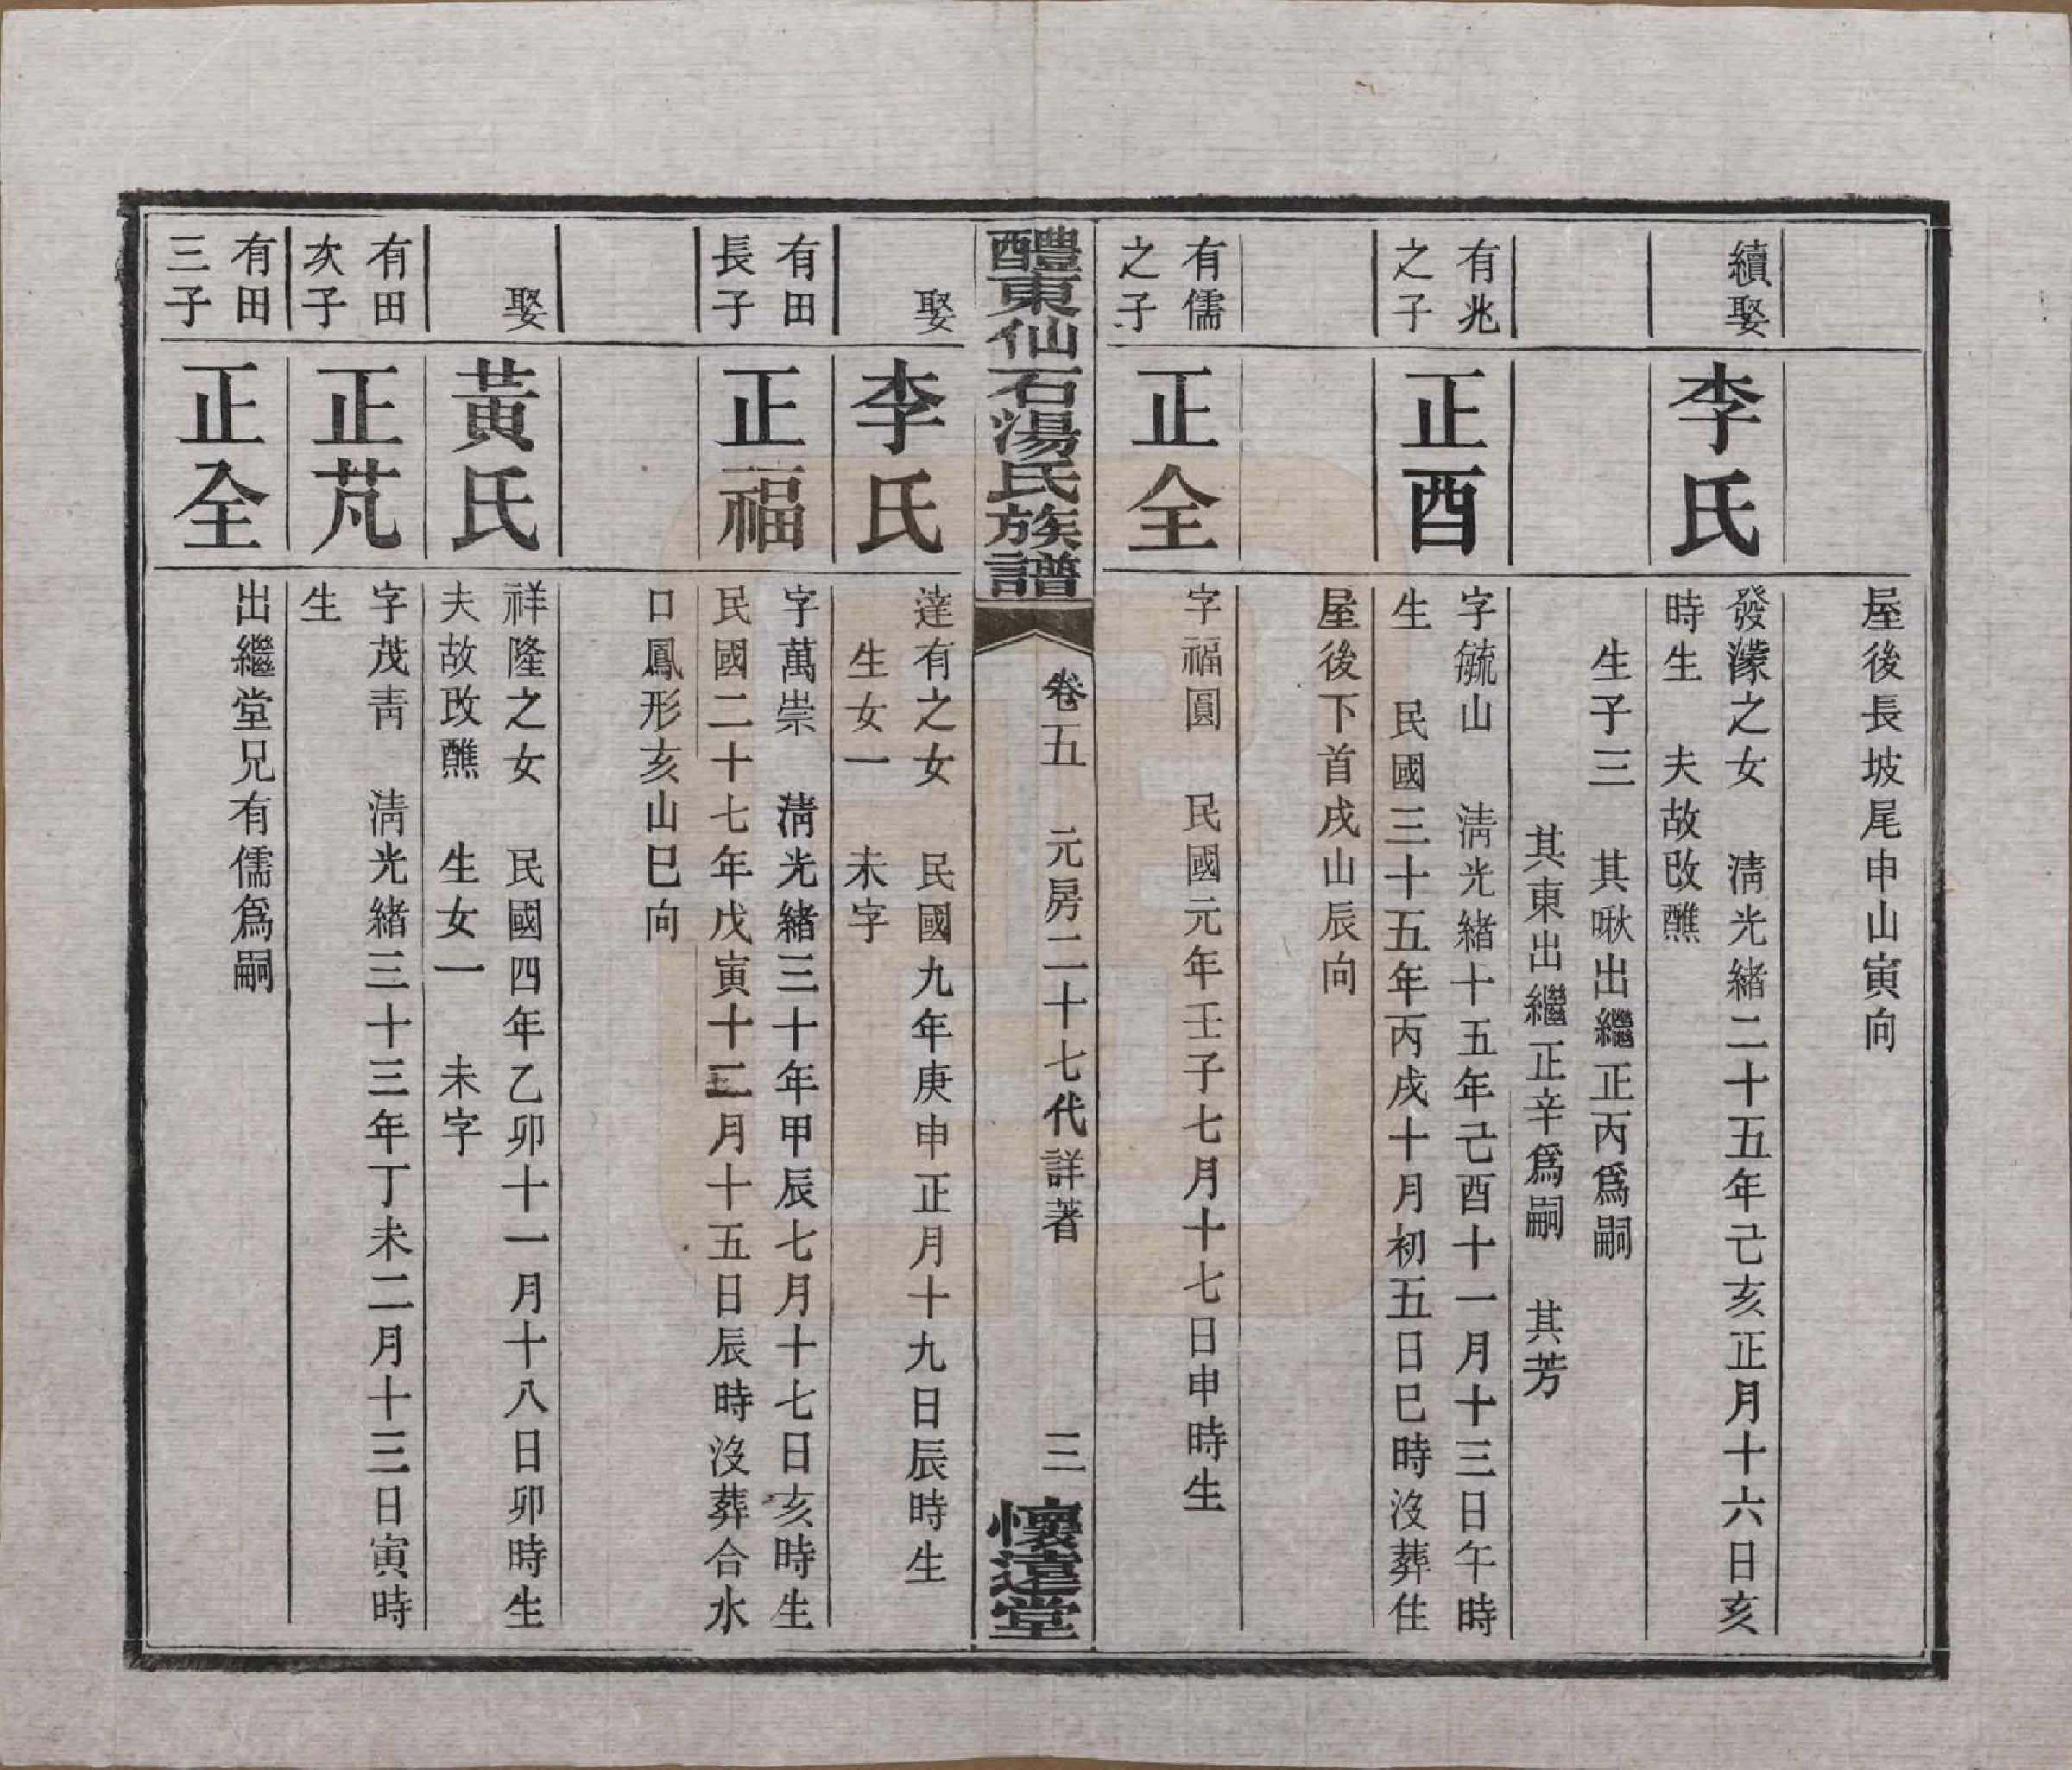 屋後長坡尾申山寅向
續娶
李氏
發濛之女　淸光緒二十五年己亥正月十六日亥
時生　夫故改醮
生子三　其啾出繼正丙爲嗣
其東出繼正辛爲嗣　其芳
有兆
之子
正酉
字毓山　淸光緒十五年己酉十一月十三日午時
生　民國三十五年丙戌十月初五日巳時沒葬住
屋後下首戌山辰向
有儒
之子
正全
字福圓　民國元年壬子七月十七日申時生
醴東仙石湯氏族譜
卷五　元房二十七代詳著　三
懷遠堂
娶
李氏
達有之女　民國九年庚申正月十九日辰時生
生女一　未字
有田
長子
正福
字萬崇　淸光緒三十年甲辰七月十七日亥時生
民國二十七年戊寅十二月十五日辰時沒葬合水
口鳳形亥山巳向
娶
黃氏
祥隆之女　民國四年乙卯十一月十八日卯時生
夫故改醮　生女一　未字
有田
次子
正芃
字茂靑　淸光緒三十三年丁未二月十三日寅時
生
有田
三子
正全
出繼堂兄有儒爲嗣